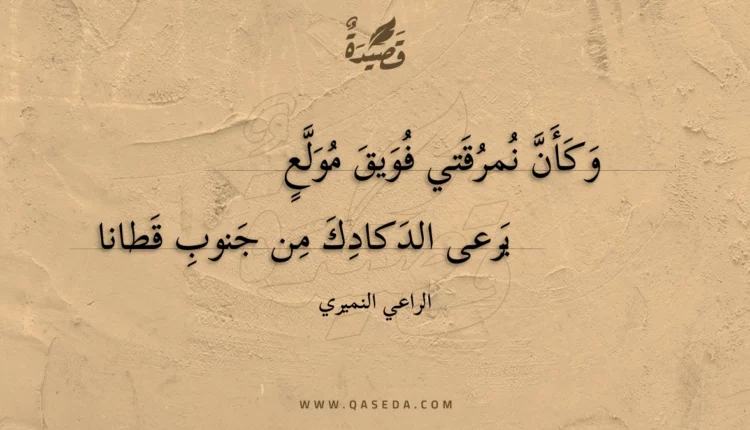 قَصِيدَةٌ
وَكَأَنَّ نُمرُقَتي فُوَيقَ مُوَلَّعٍ
يَرعى الدَكادِكَ مِن جَنوبِ قَطانا
الراعي النميري
WWW.QASEDA.COM